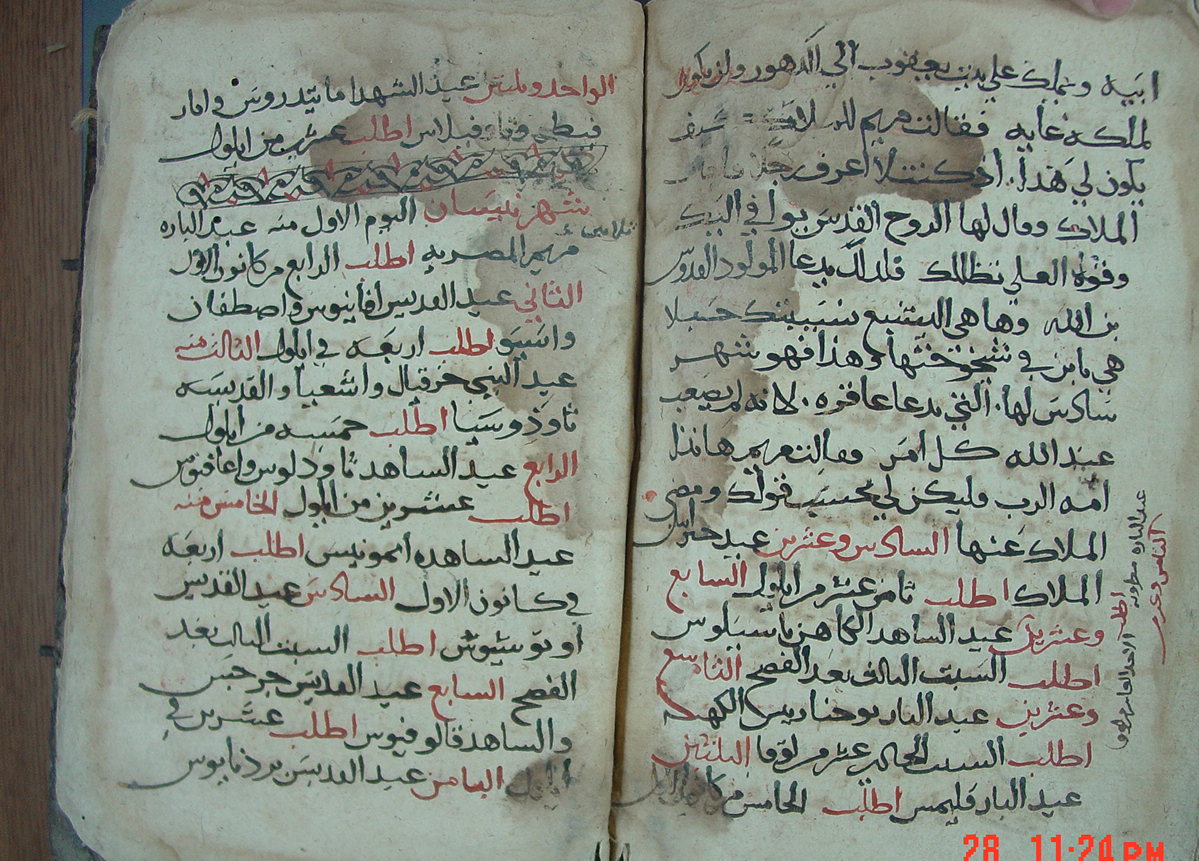 ابيه ويملك على بيت يعقوب الي الدهور ولن يكون
لملكه غايه فقالت مريم للملاك كيف
يكون لي هذا. اذ كنت لا اعرف رجلا فاجاب
الملاك وقال لها الروح القدس يوافيك
وقوة العلي تظللك فلذلك يدعا المولود القدوس
بن الله وها هي اليشبع نسيبتك حبلا
هي بابن في شيخوختها وهذا فهو شهر
سادس لها. التي تدعا عاقره. لانه لم يصعب
عند الله كل امر وقالت مريم هانذا
امه الرب فليكن لي بحسب قولك ومضى
الملاك عنها السادس وعشرين عيد جبرايل
الملاك اطلب ثامن عشر من ايلول السابع
وعشرين عيد الساهد الكاهن باسيلوس
اطلب السبت الثالث بعد الفصح التاسع
وعشرين عيد البار يوحنا رييس الكهنه
اطلب السبت الحادي عشر من لوقا الثلثين
عيد البار قليمس اطلب الخامس من كانون الاول
الثامن وعشرين
عيد الباره مطرونه اطلب الاحد
الواحد وثلثين عيد الشهدا
اطلب عشرين من ايلول
شهر نيسان اليوم الاول منه عيد الباره
مريم المصريه اطلب الرابع من كانون الاول
الثاني عيد القديس امفيانوس واصطفان
اطلب اربعه في ايلول الثالث منه
عيد النبي حزقيال واشعيا والقديسه
ثاوذوسيا اطلب خمسه من ايلول
الرابع عيد الساهد ثاودلوس واغاثبوس
اطلب عشرين من ايلول الخامس منه
عيد الساهده اطلب اربعه
في كانون الاول السادس عيد القديس
اوتوشيوش اطلب السبت الثالث بعد
الفصح السابع عيد القديس جرجس
والساهد قالوفيوس اطلب عشرين في
ايلول الثامن عيد القديس
28 11:24 PM